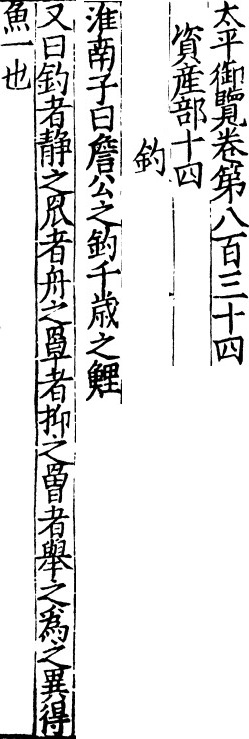 太平御覽卷第八百三十四
資産部十四
釣
淮南子曰詹公之釣千歳之鯉
又曰釣者静之罛者舟之罩者抑之罾者舉之爲之異得
魚一也